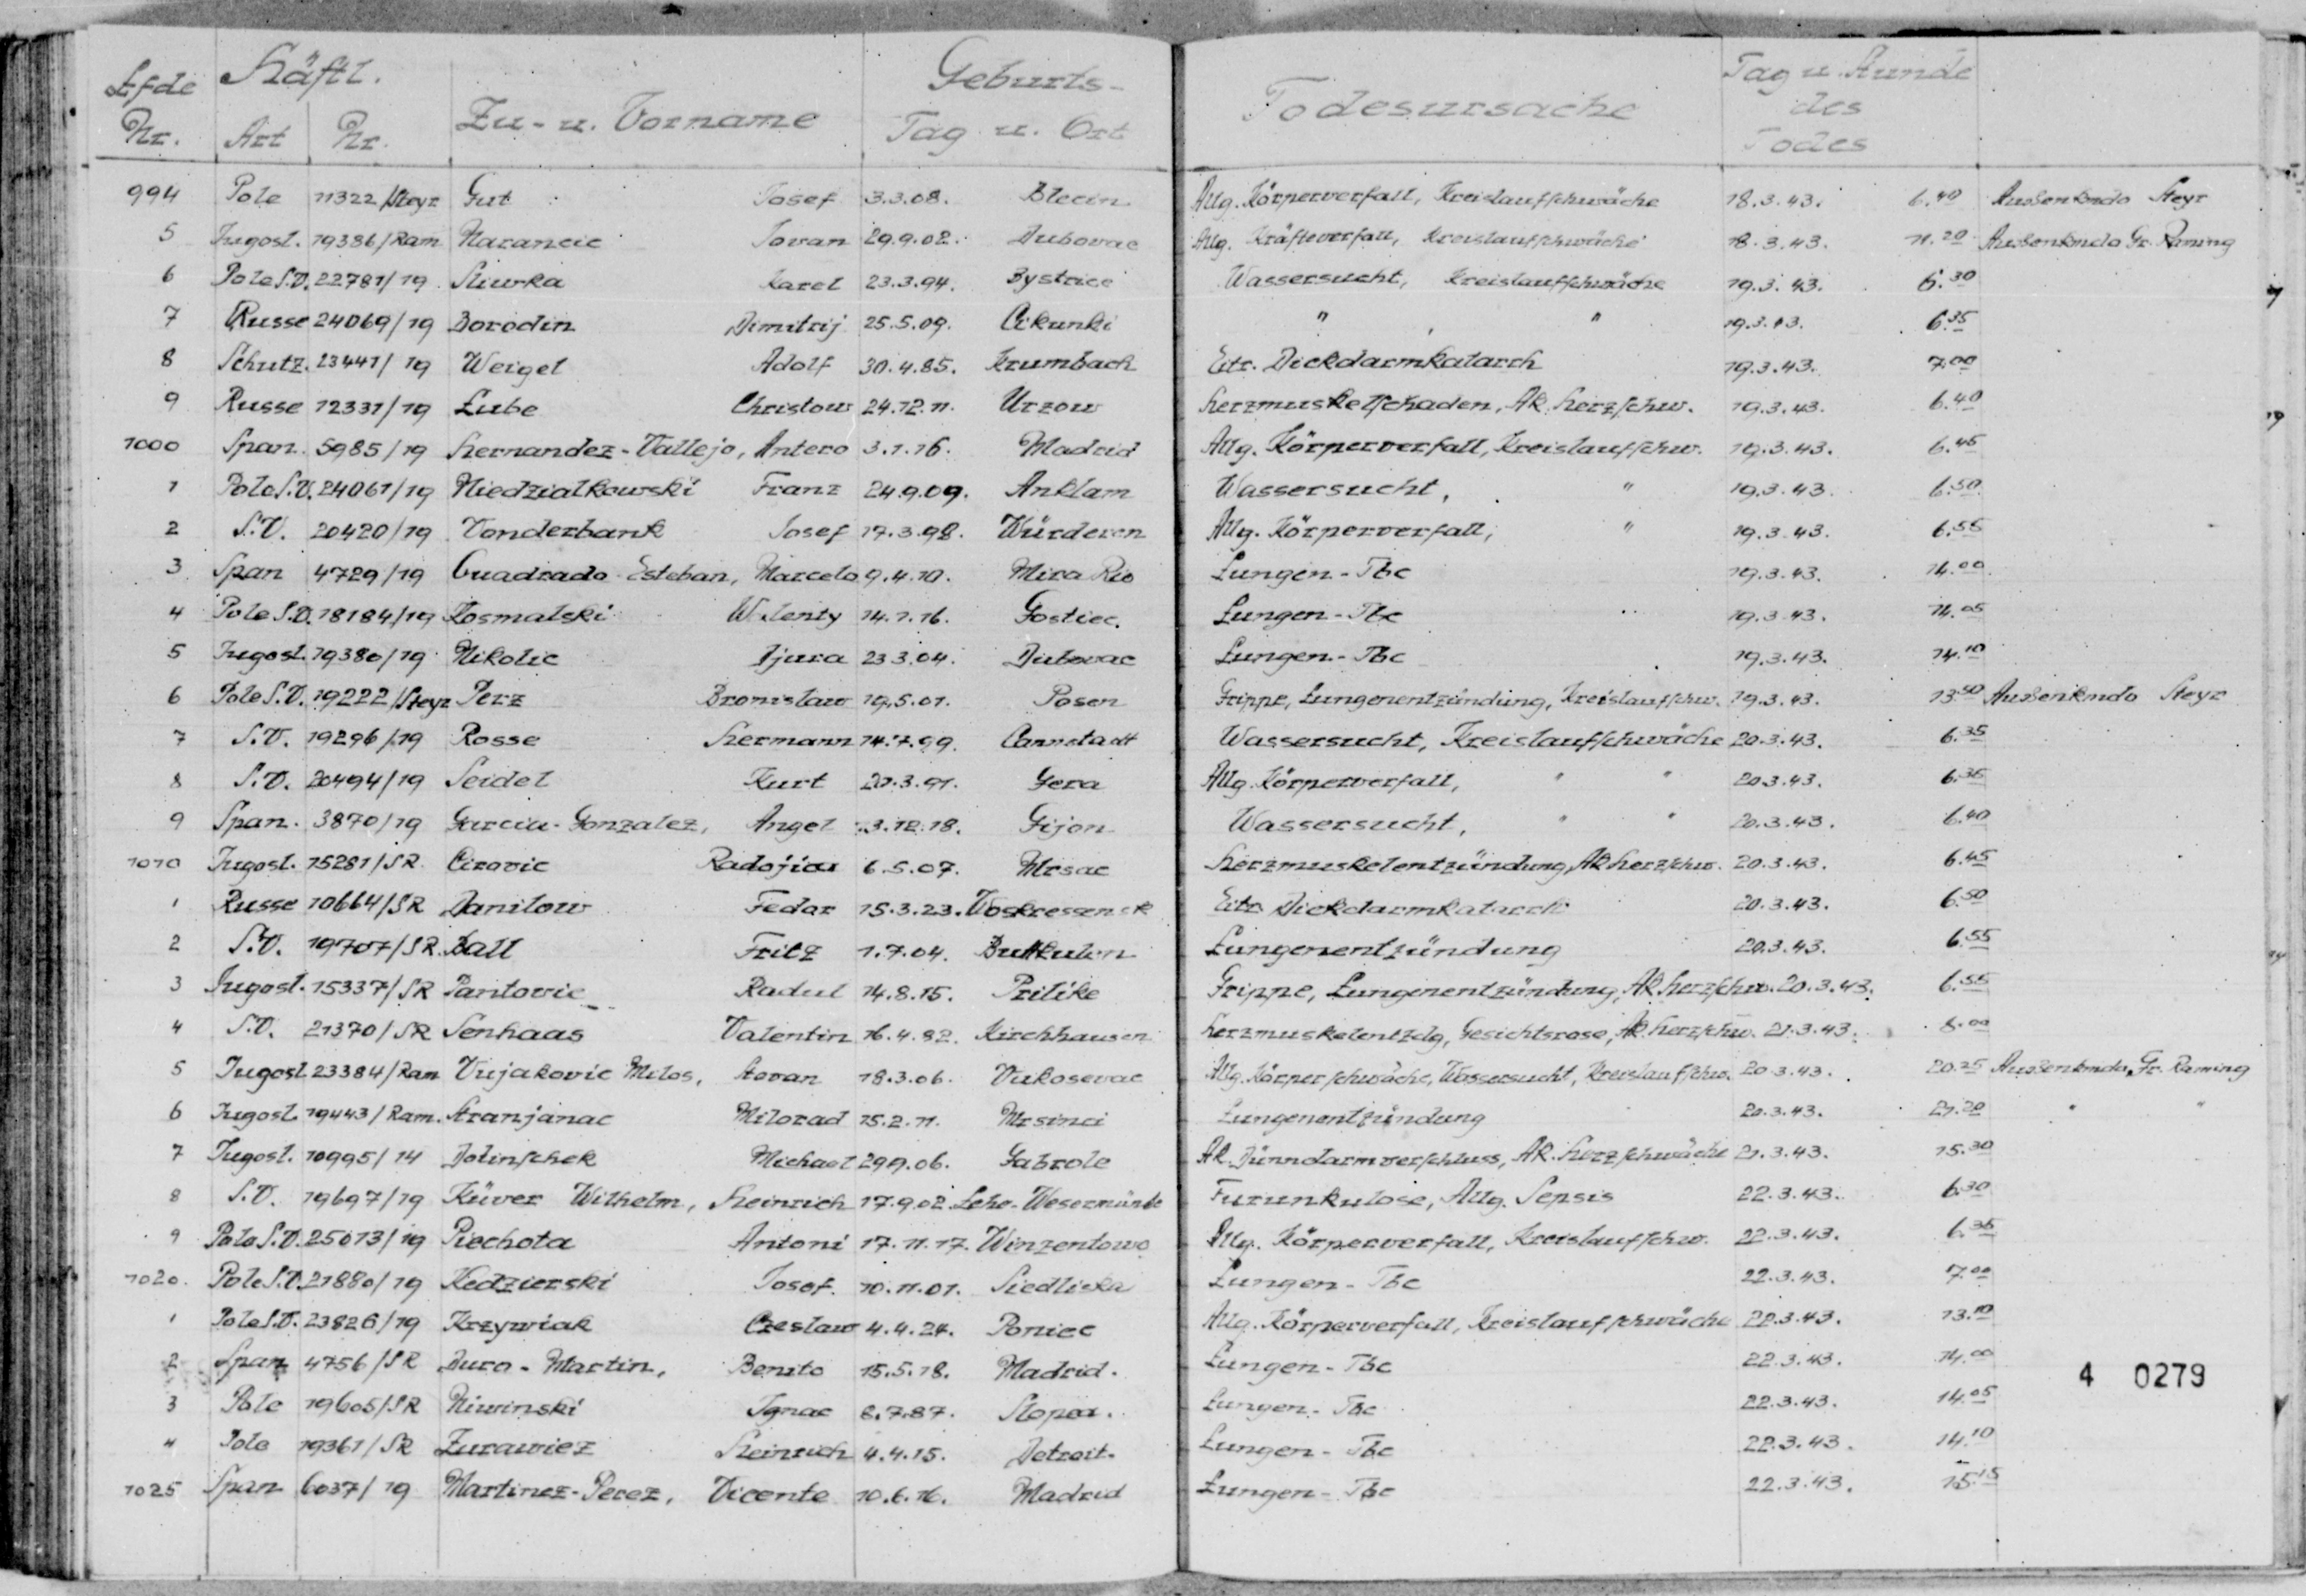 Lfde Nr. | Häftl. Art | Nr. | Zu- u. Vorname | Geburts- Tag u. Ort | Todesursache | Tag u. Stunde des Todes
994 Pole 11322/Steyr Gut Josef 3.3.08. Blecin Allg. Körperverfall, Kreislaufschwäche 18.3.43. 6.40 Außenkmdo Steyr
5 Jugosl. 19386/Ram Narancic Jovan 29.9.02. Dubovac Allg. Kräfteverfall, Kreislaufschwäche 18.3.43. 11.20 Außenkmdo Gr. Raming
6 Pole S.V. 22781/19 Sliwka Karel 23.3.94. Bystrice Wassersucht, Kreislaufschwäche 19.3.43. 6.30
7 Russe 24069/19 Borodin Dimitrij 25.5.09. Cikunki " , " 19.3.43. 6.35
8 Schutz. 23441/19 Weigel Adolf 30.4.85. Krumbach Eitr. Dickdarmkatarrh 19.3.43. 7.00
9 Russe 12331/19 Lube Christow 24.12.11. Urzow Herzmuskelschaden, Ak. Herzschw. 19.3.43. 6.40
1000 Span. 5985/19 Hernandez-Vallejo, Antero 3.1.16. Madrid Allg. Körperverfall, Kreislaufschw. 19.3.43. 6.45
1 Pole S.V. 24061/19 Niedzialkowski Franz 24.9.09. Anklam Wassersucht, " 19.3.43. 6.50
2 S.V. 20420/19 Vonderbank Josef 17.3.98. Würderen Allg. Körperverfall, " 19.3.43. 6.55
3 Span 4729/19 Cuadrado-Esteban, Marcelo 9.4.10. Mira Rio Lungen-Tbc 19.3.43. 14.00
4 Pole S.V. 18184/19 Kosmalski Walenty 14.1.16. Gostiec. Lungen-Tbc 19.3.43. 14.05
5 Jugosl. 19380/19 Nikolic Djura 23.3.04. Dubovac Lungen-Tbc 19.3.43. 14.10
6 Pole S.V. 19222/Steyr Perz Bronislaw 19.5.01. Posen Grippe, Lungenentzündung, Kreislaufschw. 19.3.43. 13.50 Außenkmdo Steyr
7 S.V. 19296/19 Rosse Hermann 14.7.99. Cannstadt Wassersucht, Kreislaufschwäche 20.3.43. 6.35
8 S.V. 20494/19 Seidel Kurt 20.3.91. Gera Allg. Körperverfall, " " 20.3.43. 6.35
9 Span. 3870/19 Garcia-Gonzalez, Angel 3.12.18. Gijon Wassersucht, " " 20.3.43. 6.40
1010 Jugosl. 15281/SR Cirovic Radojica 6.5.07. Mrsac Herzmuskelentzündung, Ak Herzschw. 20.3.43. 6.45
1 Russe 10664/SR Danilow Fedor 15.3.23. Woskressensk Eitr. Dickdarmkatarrh 20.3.43. 6.50
2 S.V. 19707/SR Ball Fritz 1.7.04. Buttkulen Lungenentzündung 20.3.43. 6.55
3 Jugosl. 15337/SR Pantovic Radul 14.8.15. Prilike Grippe, Lungenentzündung, Ak Herzschw. 20.3.43. 6.55
4 S.V. 21370/SR Senhaas Valentin 16.4.82. Kirchhausen Herzmuskelentzdg, Gesichtsrose, Ak. Herzschw. 21.3.43. 8.00
5 Jugosl 23384/Ram Vujakovic Milos, Stevan 18.3.06. Vukosevac Allg. Körperschwäche, Wassersucht, Kreislaufschw. 20.3.43. 20.25 Außenkmdo, Gr. Raming
6 Jugosl. 19443/Ram. Stranjanac Milorad 15.2.11. Mrsinci Lungenentzündung 20.3.43. 21.20 " "
7 Jugosl. 10995/14 Dolinschek Michael 29.9.06. Gabrole Ak. Dünndarmverschluss, Ak. Herzschwäche 21.3.43. 15.30
8 S.V. 19697/19 Küver Wilhelm, Heinrich 17.9.02 Lehe-Wesermünde Furunkulose, Allg. Sepsis 22.3.43. 6.30
9 Pole S.V. 25013/19 Piechota Antoni 17.11.17. Winzentowo Allg. Körperverfall, Kreislaufschw. 22.3.43. 6.35
1020. Pole S.V. 21880/19 Kedzierski Josef. 10.11.01. Siedliska Lungen-Tbc 22.3.43. 7.00
1 Pole S.V. 23826/19 Krzywiak Czeslaw 4.4.24. Poniec Allg. Körperverfall, Kreislaufschwäche 22.3.43. 13.10
2 Span 4756/SR Duro-Martin, Benito 15.5.18. Madrid. Lungen-Tbc 22.3.43. 14.00
3 Pole 19605/SR Niwinski Ignac 8.7.87. Slopca. Lungen-Tbc 22.3.43. 14.05
4 Pole 19361/SR Zurawiez Heinrich 4.4.15. Detroit. Lungen-Tbc 22.3.43. 14.10
1025 Span 6037/19 Martinez-Perez, Vicente 10.6.16. Madrid Lungen-Tbc 22.3.43. 15.15
4 0279